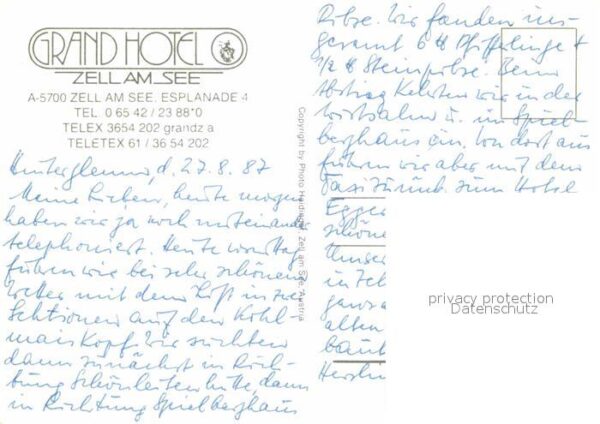 GRAND HOTEL
ZELL AM SEE
A-5700 ZELL AM SEE, ESPLANADE 4
TEL. 0 65 42 / 23 88*0
TELEX 3654 202 grandz a
TELETEX 61 / 36 54 202
Hinterglemm, d. 27.8.87
Meine Lieben, heute morgen
haben wir ja noch miteinander
telephoniert. Heute vormittag
fuhren wir bei sehr schönem
Wetter mit dem Lift in zwei
Sektionen auf den Kohl-
maiskopf. Wir suchten
dann zunächst in Rich-
tung Schönleitenhütte, dann
in Richtung Spielberghaus
Copyright by Photo Haidinger, Zell am See, Austria
Pilze. Wir fanden ins-
gesamt 6 ℔ Pfifferlinge +
1/2 ℔ Steinpilze. Beim
Abstieg kehrten wir in der
u. im Spiel-
berghaus ein. Von dort aus
fuhren wir aber mit dem
Taxi zurück zum Hotel
Egger
schöne
Unser
in Zell
ganz
alten
baut
Herzlich
privacy protection
Datenschutz